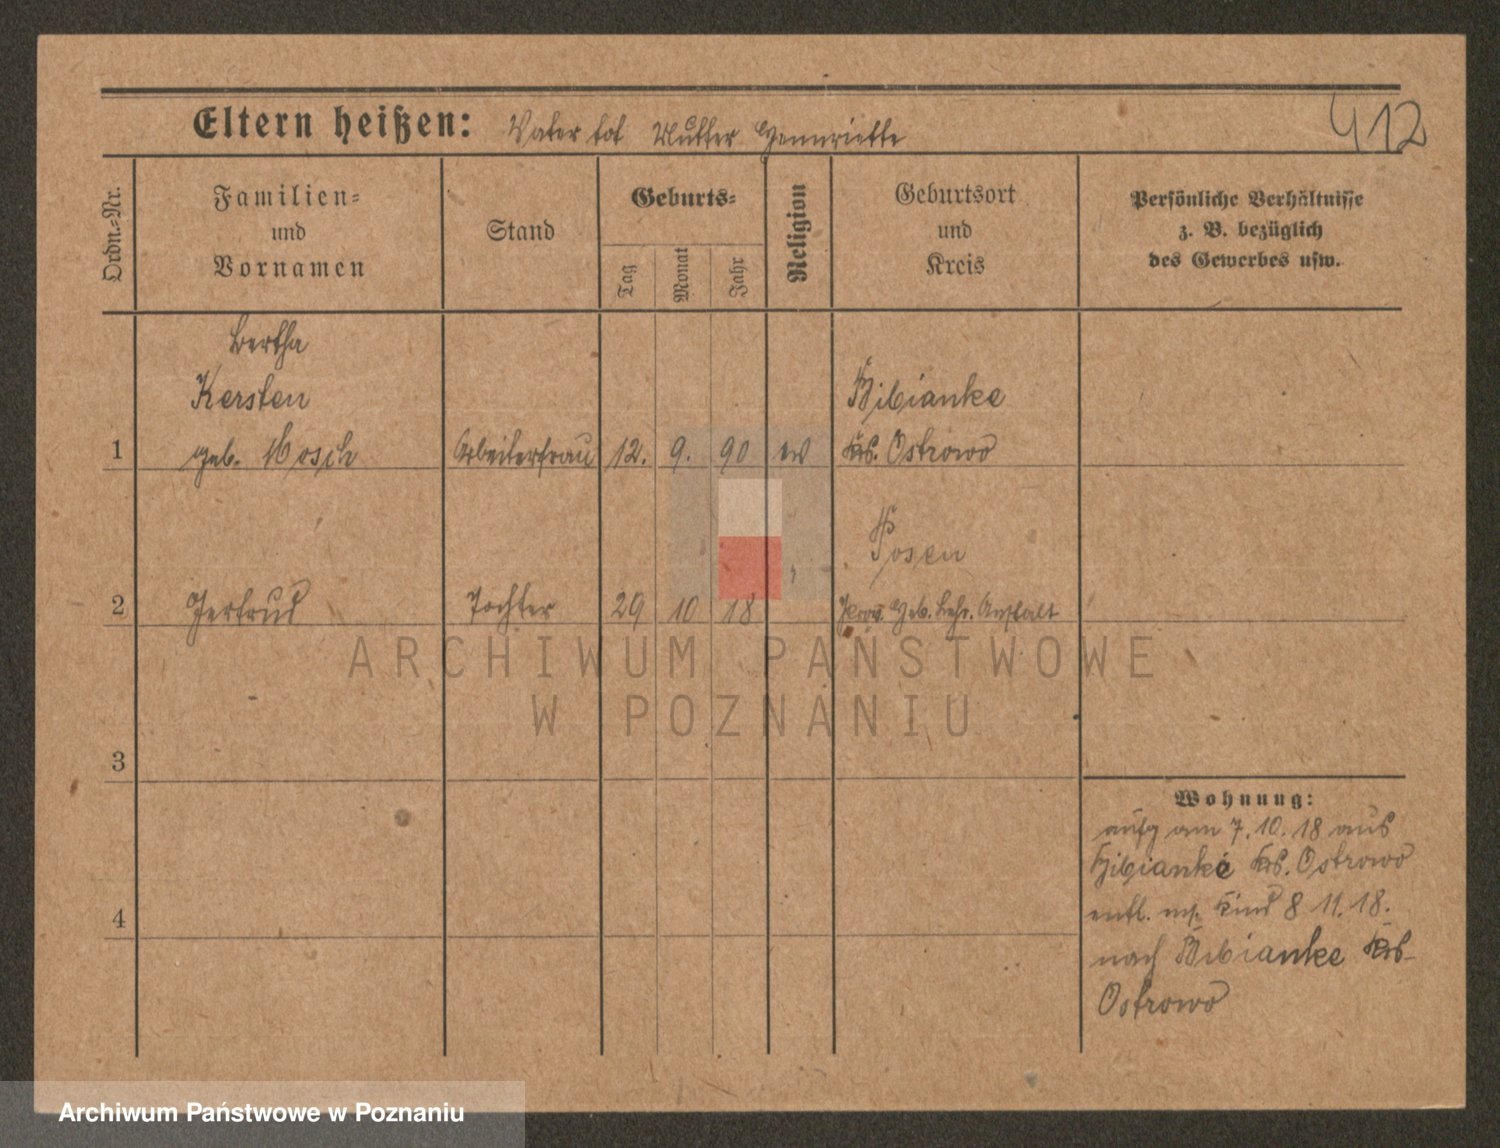 Eltern heißen: Vater tot Mutter Hennriette
412
Ordn.-Nr.
Familien-
und
Vornamen
Stand
Geburts-
Tag
Monat
Jahr
Religion
Geburtsort
und
Kreis
Persönliche Verhältnisse
z. B. bezüglich
des Gewerbes usw.
Bertha
Kersten
1 geb. Mosch Arbeiterfrau 12. 9. 90 ev
Bibianke
Krs. Ostrowo
Posen
2 Gertrud Tochter 29 10 18 Prov. Heb. Lehr. Anstalt
ARCHIWUM PAŃSTWOWE
W POZNANIU
3
4
Wohnung:
aufg am 7.10.18 aus
Bibianke Krs. Ostrowo
entl. m. Kind 8 11.18.
nach Bibianke Krs
Ostrowo
Archiwum Państwowe w Poznaniu